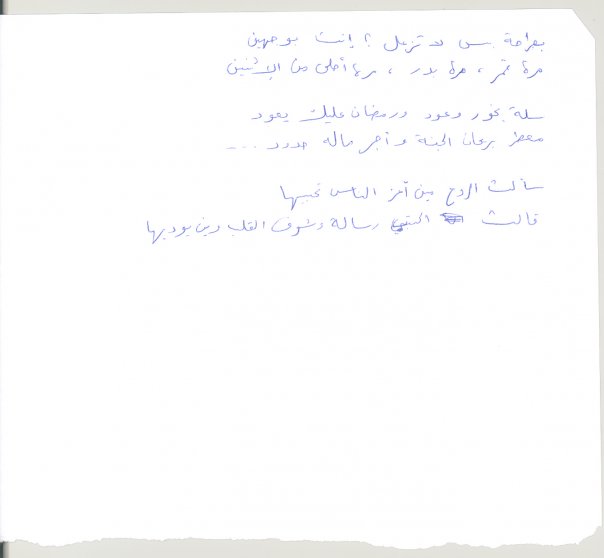 بصراحة بس لا تزعل ؟ إنت بوجهين
مرة قمر ، مرة بدر ، مرة أحلى من الإثنين
سلة بخور وعود ورمضان عليك يعود
معطر بريحان الجنة وأجر ماله حدود ...
سألت الروح مين أعز الناس تحبيها
قالت اكتبي رسالة وشوف القلب وين يوديها